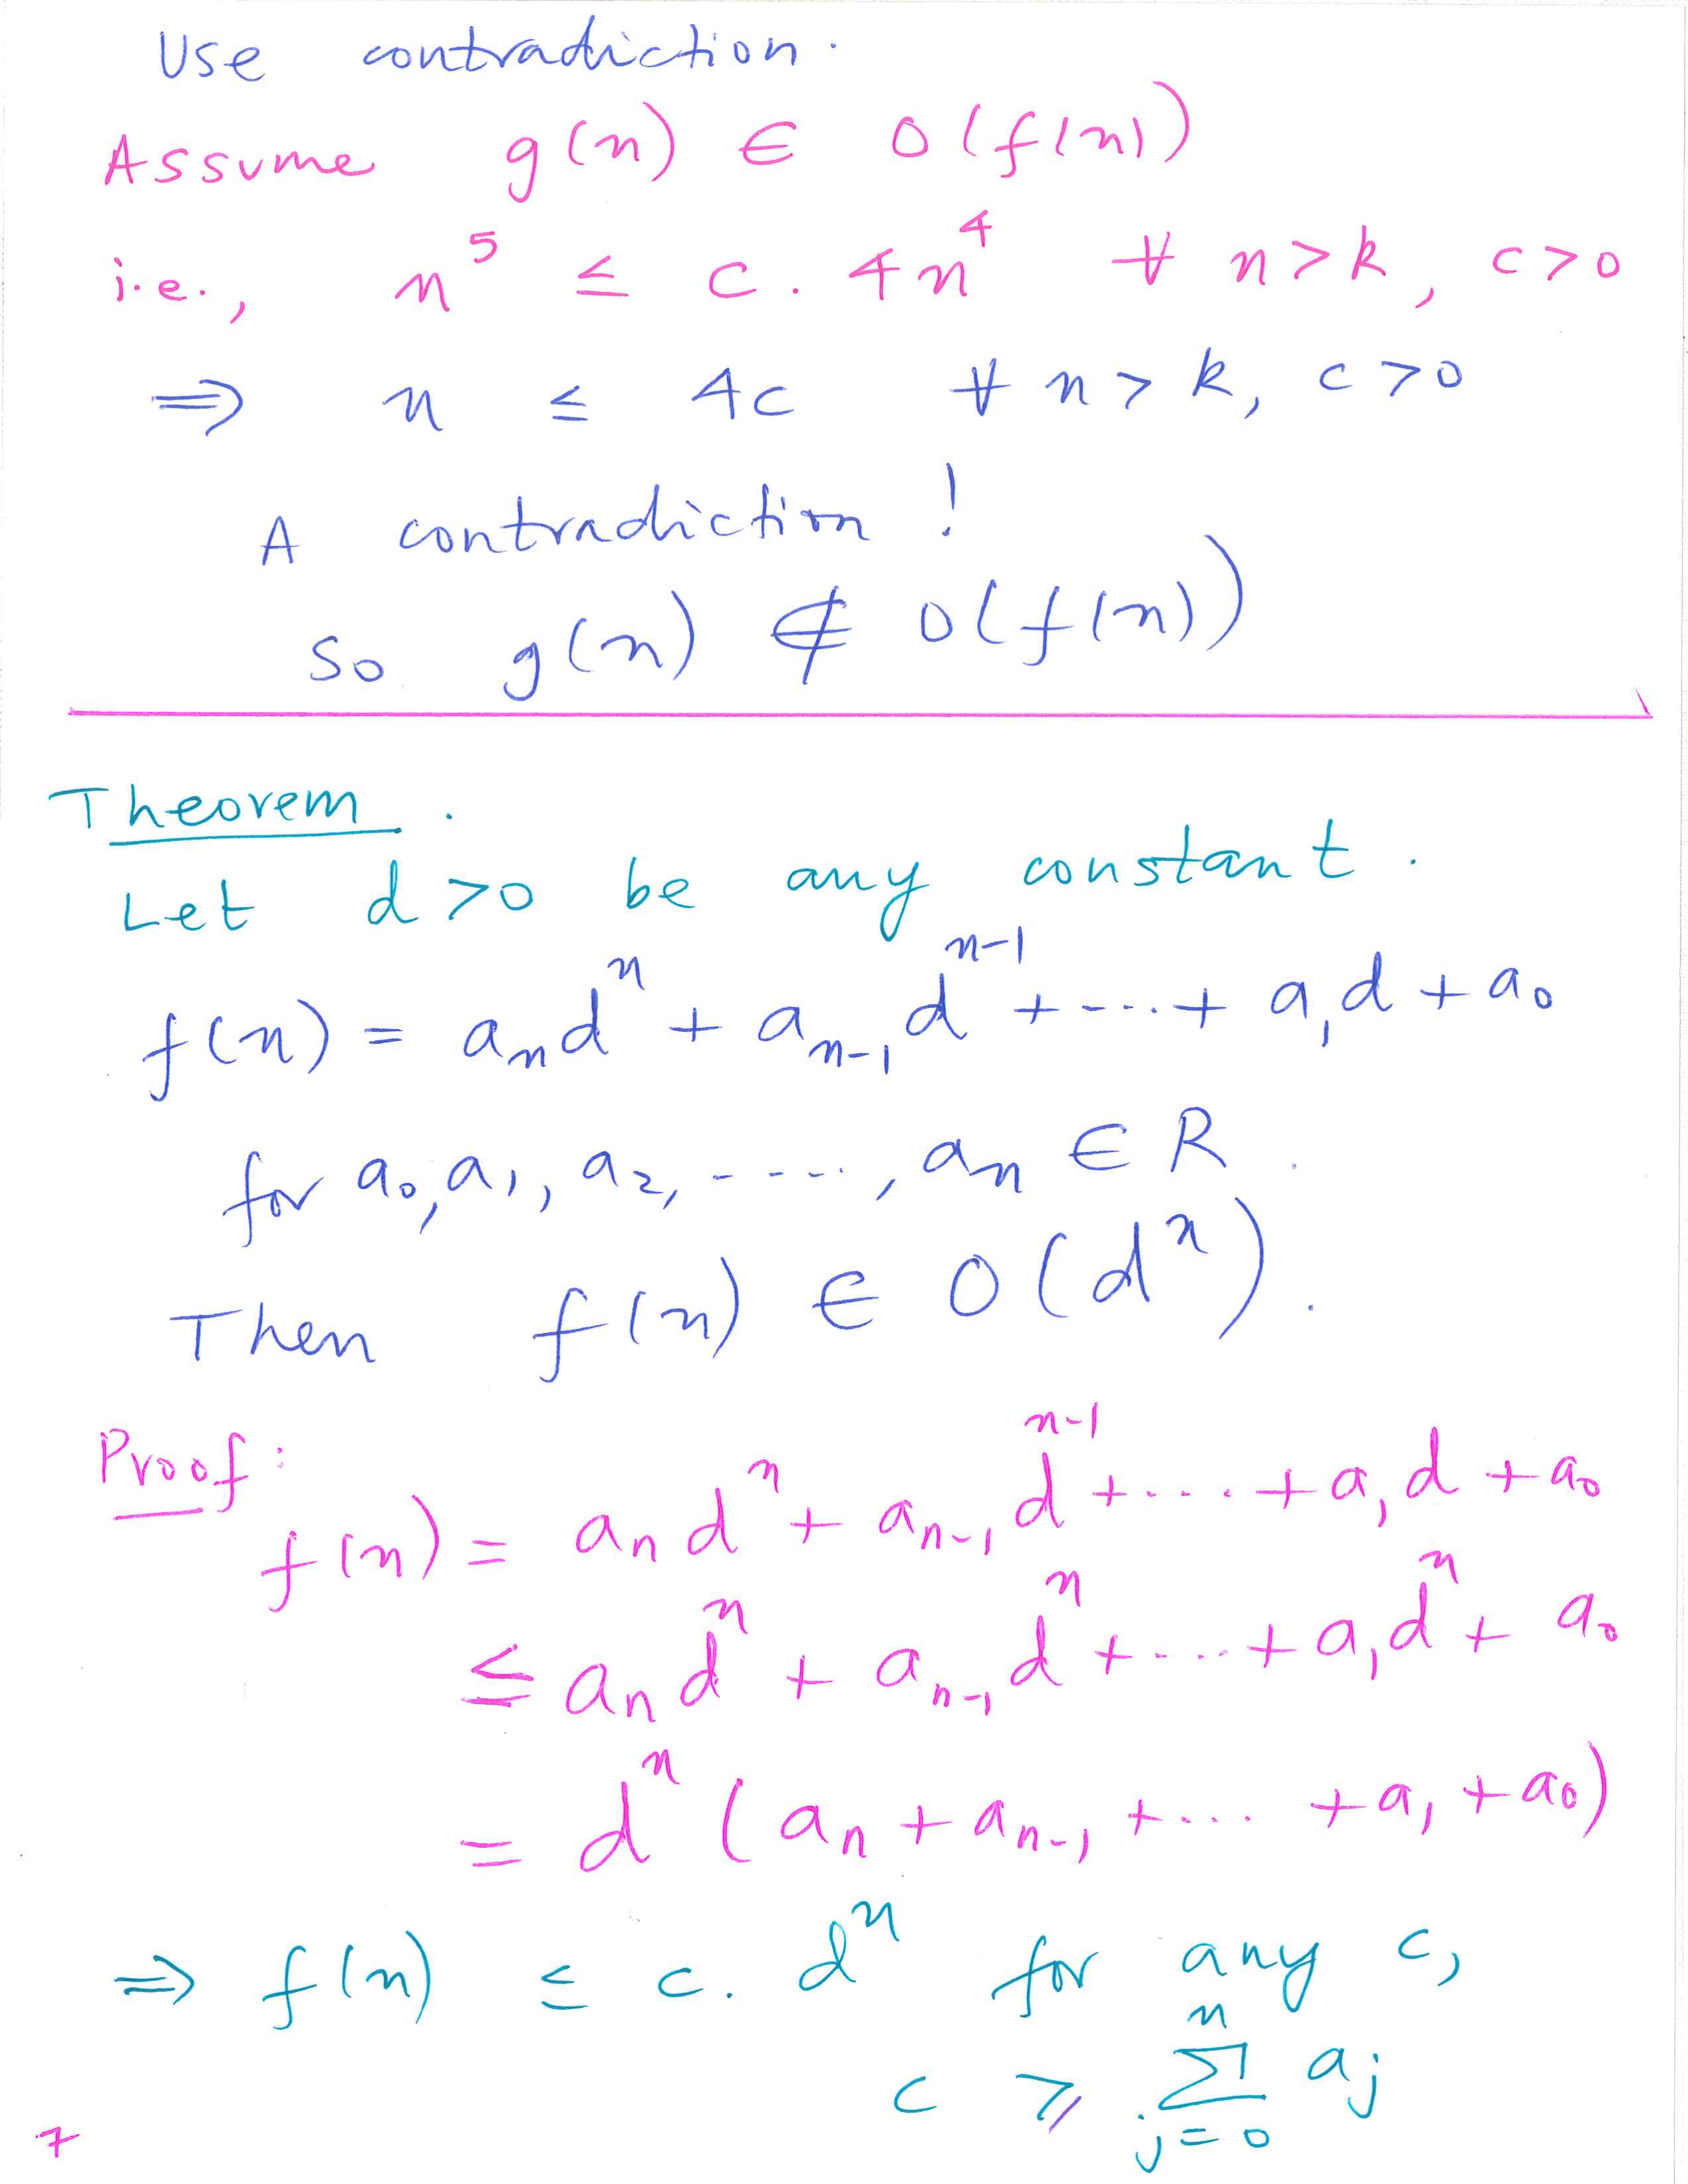 Use contradiction.
Assume g(n) ∈ O(f(n))
i.e., n⁵ ≤ c. 4n⁴ ∀ n>k, c>0
⇒ n ≤ 4c ∀ n>k, c>0
A contradiction!
So g(n) ∉ O(f(n))
Theorem.
Let d>0 be any constant.
f(n) = aₙdⁿ + aₙ₋₁dⁿ⁻¹ + ---- + a₁d + a₀
for a₀, a₁, a₂, -----, aₙ ∈ R.
Then f(n) ∈ O(dⁿ).
Proof:
f(n) = aₙdⁿ + aₙ₋₁dⁿ⁻¹ + .... + a₁d + a₀
≤ aₙdⁿ + aₙ₋₁dⁿ + .... + a₁dⁿ + a₀
= dⁿ (aₙ + aₙ₋₁ + .... + a₁ + a₀)
⇒ f(n) ≤ c. dⁿ for any c,
c ≥ ∑ⁿⱼ₌₀ aⱼ
7